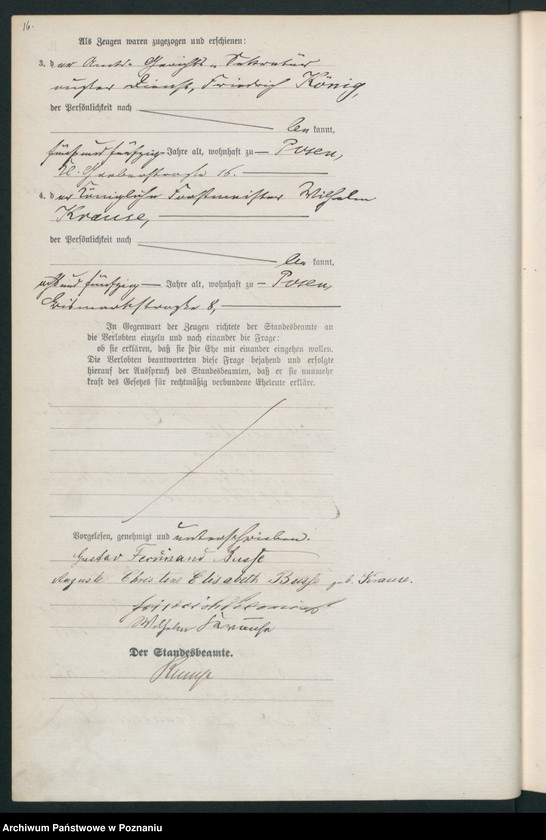 16.
Als Zeugen waren zugezogen und erschienen:
3. der Amts-Gerichts-Sekretär
außer Dienst, Friedrich König,
der Persönlichkeit nach
bekannt,
fünfundfünfzig Jahre alt, wohnhaft zu Posen,
16.
4. der Königliche Forstmeister Wilhelm
Krause,
der Persönlichkeit nach
bekannt,
achtundfünfzig Jahre alt, wohnhaft zu Posen,
Bismarckstraße 8,
In Gegenwart der Zeugen richtete der Standesbeamte an
die Verlobten einzeln und nach einander die Frage:
ob sie erklären, daß sie die Ehe mit einander eingehen wollen.
Die Verlobten beantworteten diese Frage bejahend und erfolgte
hierauf der Ausspruch des Standesbeamten, daß er sie nunmehr
kraft des Gesetzes für rechtmäßig verbundene Eheleute erkläre.
Vorgelesen, genehmigt und unterschrieben.
Gustav Ferdinand Busse
Auguste Christine Elisabeth Busse geb. Krause.
Friedrich Koenig
Wilhelm Krause
Der Standesbeamte.
Archiwum Państwowe w Poznaniu